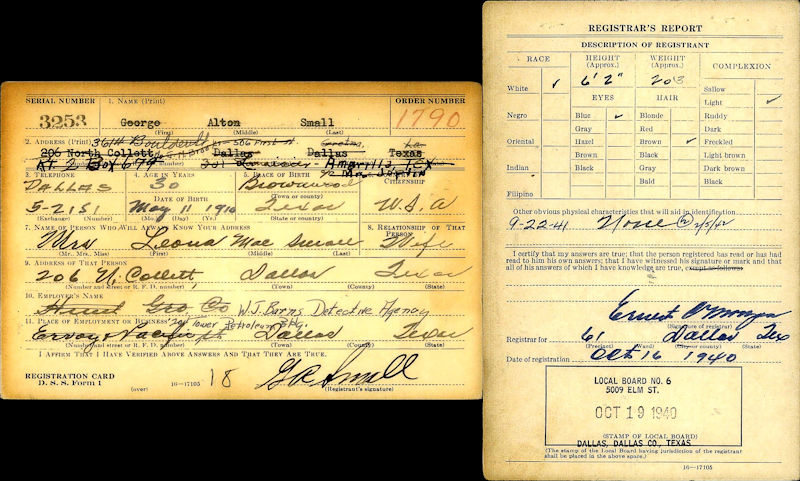 SERIAL NUMBER 1. NAME (Print) ORDER NUMBER
3253 George Alton Small 1790
(First) (Middle) (Last)
2. ADDRESS (Print) 506 First St.
206 North Collett Dallas Dallas Texas
Rt 2 Box 674 Amarillo, Tex
3. TELEPHONE 4. AGE IN YEARS 5. PLACE OF BIRTH 6. COUNTRY OF CITIZENSHIP
DALLAS 30 Brownwood
DATE OF BIRTH (Town or county)
5-2151 May 11 1910 Texas U.S.A
(Exchange) (Number) (Mo.) (Day) (Yr.) (State or country)
7. NAME OF PERSON WHO WILL ALWAYS KNOW YOUR ADDRESS 8. RELATIONSHIP OF THAT PERSON
Mrs Leona Mae Small Wife
(Mr., Mrs., Miss) (First) (Middle) (Last)
9. ADDRESS OF THAT PERSON
206 N. Collett, Dallas Texas
(Number and street or R. F. D. number) (Town) (County) (State)
10. EMPLOYER'S NAME
Hunt Gro Co W.J. Burns Detective Agency
11. PLACE OF EMPLOYMENT OR BUSINESS Tower Petroleum Bldg.
Ervay & Pacific Dallas Texas
(Number and street or R. F. D. number) (Town) (County) (State)
I AFFIRM THAT I HAVE VERIFIED ABOVE ANSWERS AND THAT THEY ARE TRUE.
REGISTRATION CARD
D. S. S. Form 1 (over) 16—17105 18 G A Small
(Registrant's signature)
REGISTRAR'S REPORT
DESCRIPTION OF REGISTRANT
RACE HEIGHT (Approx.) WEIGHT (Approx.) COMPLEXION
6' 2" 203
White ✓ Sallow
EYES HAIR Light ✓
Ruddy
Negro Blue ✓ Blonde
Gray Red Dark
Oriental Hazel Brown ✓ Freckled
Brown Black Light brown
Indian Black Gray Dark brown
Bald Black
Filipino
Other obvious physical characteristics that will aid in identification
9-22-41 None 2/5/42
I certify that my answers are true; that the person registered has read or has had
read to him his own answers; that I have witnessed his signature or mark and that
all of his answers of which I have knowledge are true, except as follows:
Ernest
(Signature of registrar)
Registrar for 61 Dallas Tex
(Precinct) (Ward) (City or county) (State)
Date of registration Oct 16 1940
LOCAL BOARD NO. 6
5009 ELM ST.
OCT 19 1940
(STAMP OF LOCAL BOARD)
DALLAS, DALLAS CO., TEXAS
(The stamp of the Local Board having jurisdiction of the registrant
shall be placed in the above space.)
16—17105